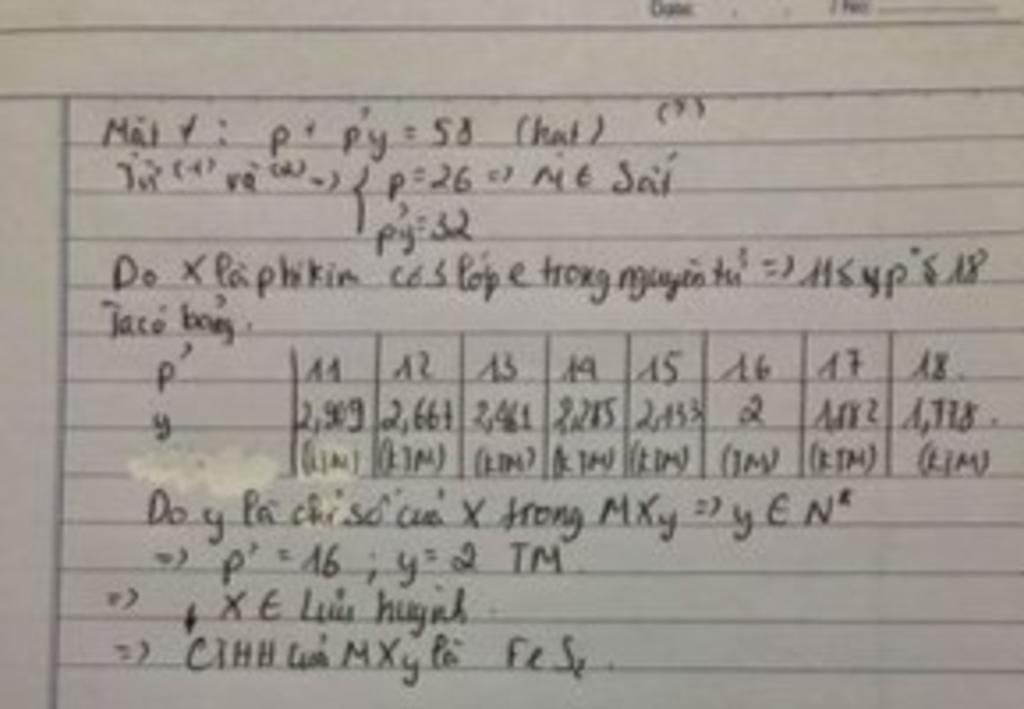 Mặt ≠ : p + p'y = 58 (hạt) (3)
Từ (1) và (2) => { p = 26 => M ∈ Sắt
p'y = 32
Do X là phi kim có 3 lớp e trong nguyên tử => 11 ≤ p' ≤ 18
Ta có bảng.
p' 11 12 13 14 15 16 17 18
y 2,909 2,667 2,461 2,285 2,133 2 1,882 1,778
(KTM) (KTM) (KTM) (KTM) (KTM) (TM) (KTM) (KTM)
Do y là chỉ số của X trong MXy => y ∈ N*
=> p' = 16 ; y = 2 TM
=> X ∈ Lưu huỳnh
=> CTHH của MXy là FeS₂.